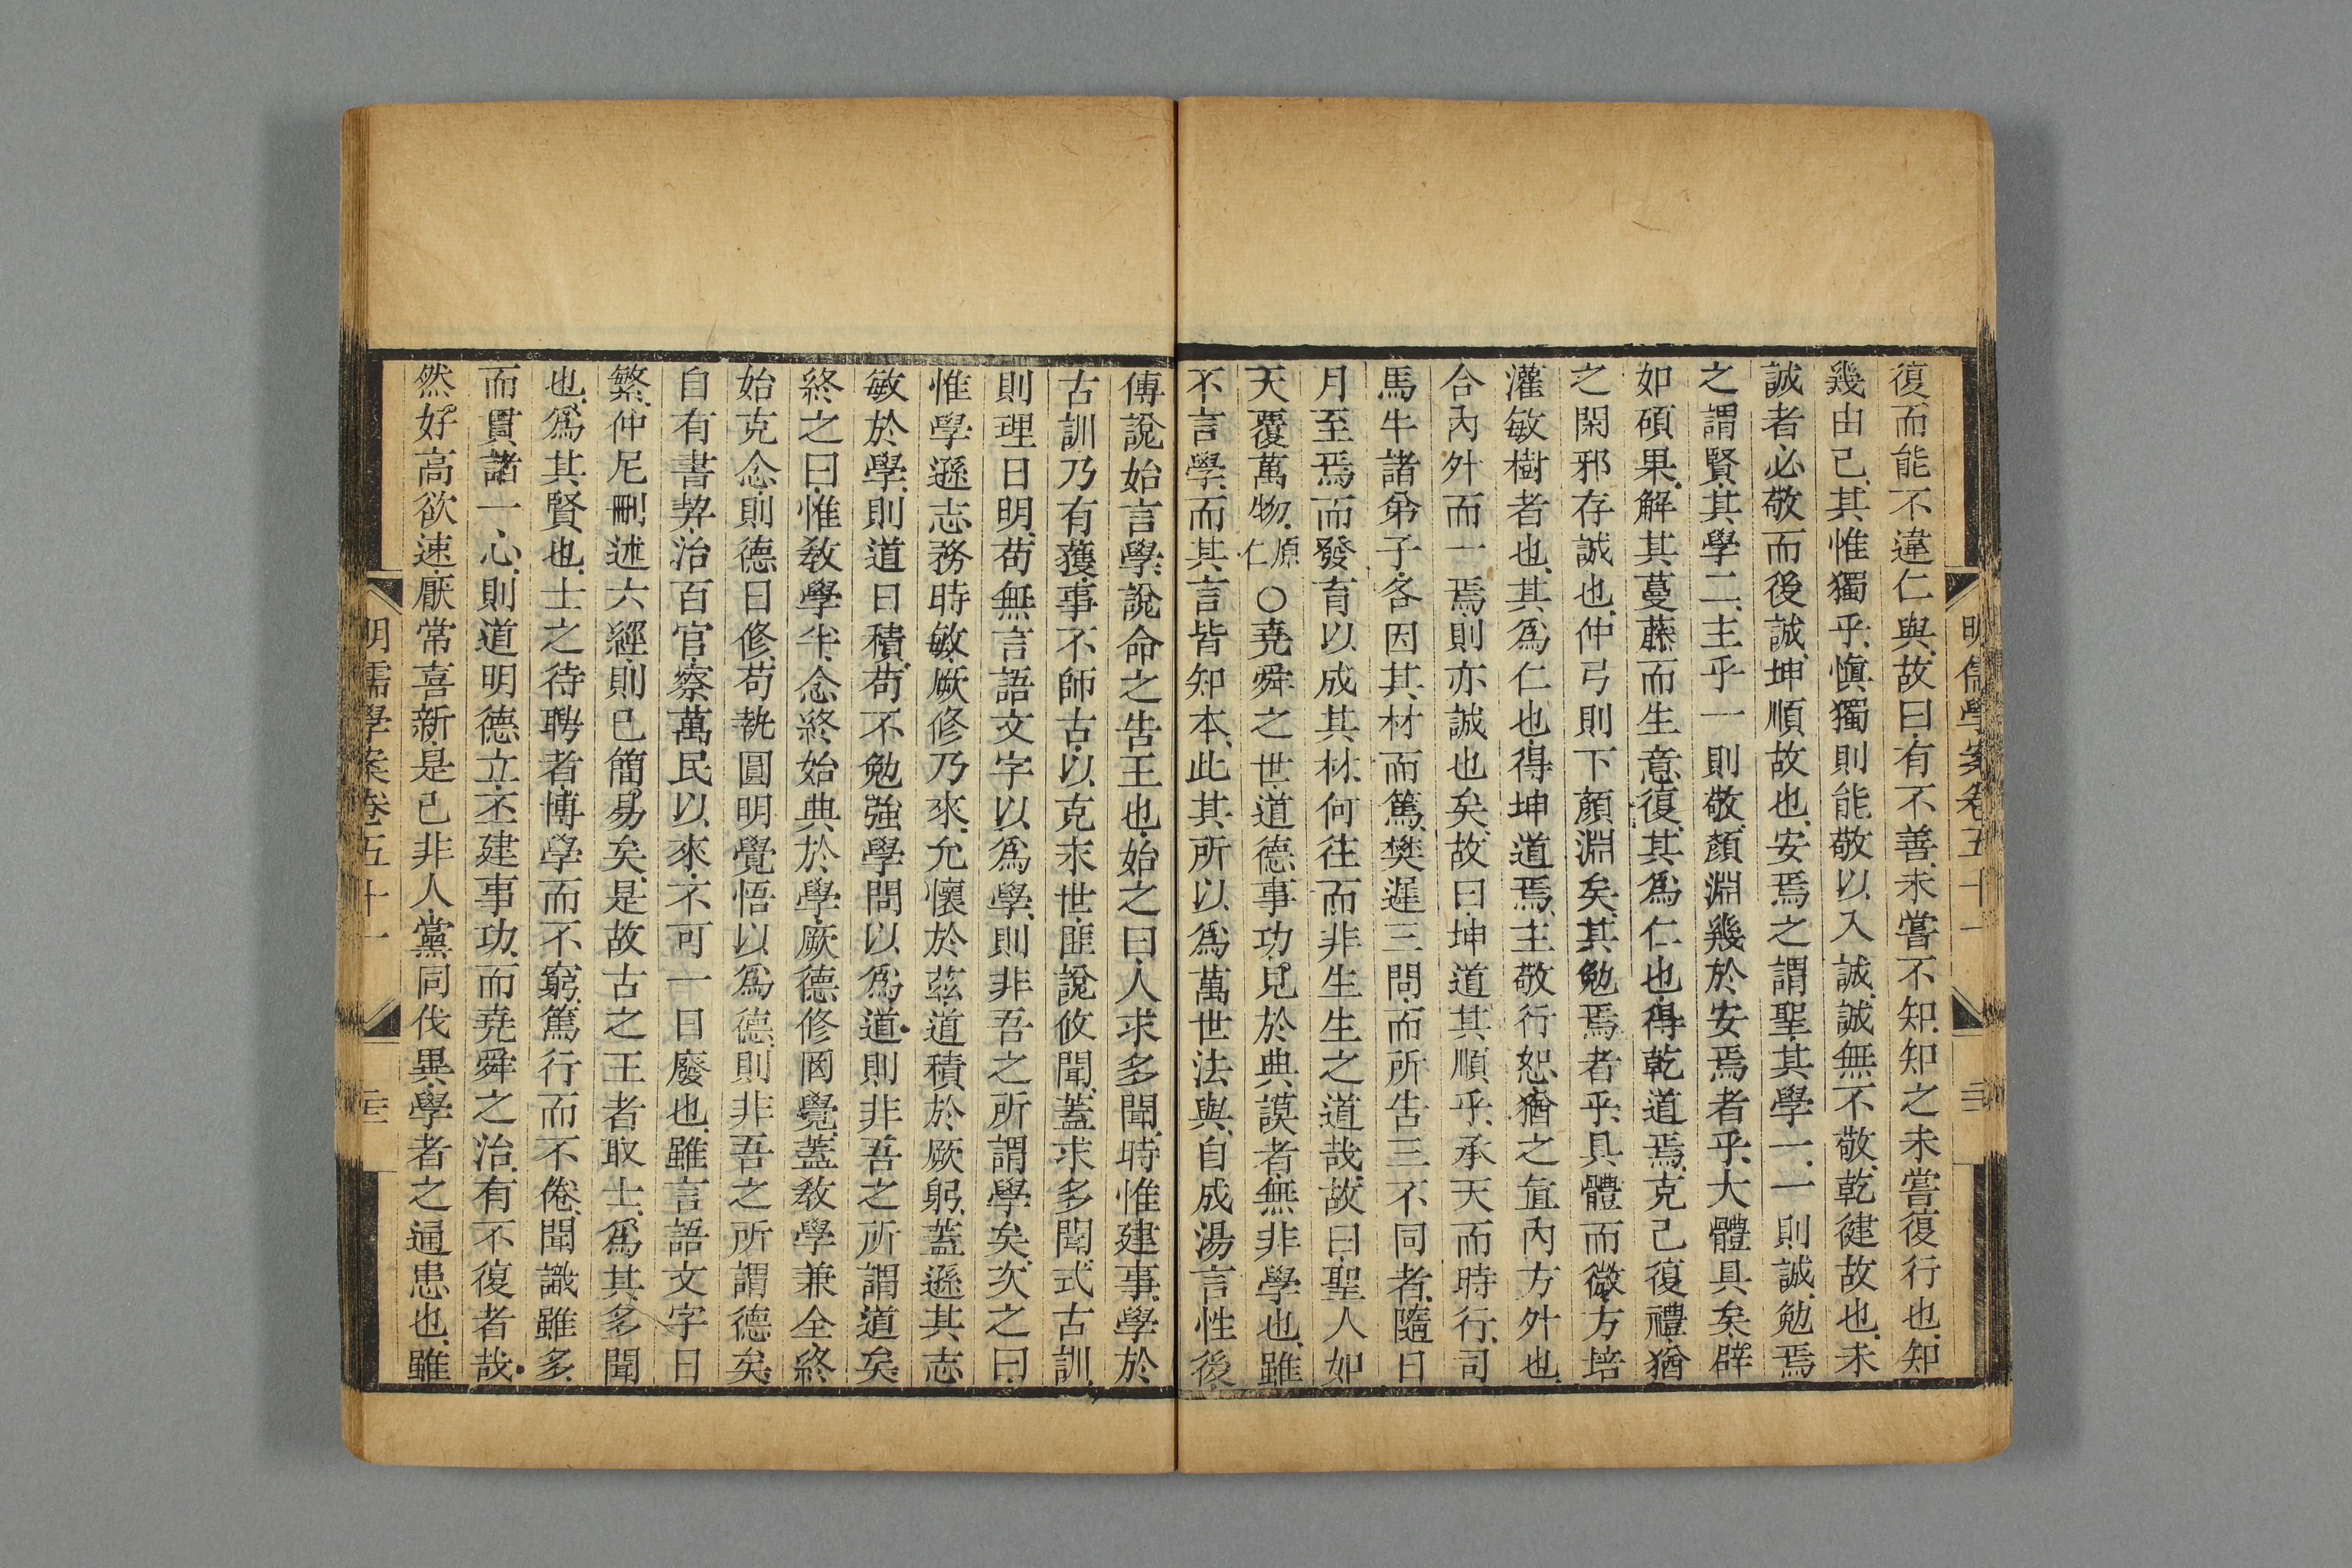 明儒學案卷五十一
復而能不違仁與故曰有不善未嘗不知知之未嘗復行也知
幾由己其惟獨乎愼獨則能敬以入誠誠無不敬乾健故也未
誠者必敬而後誠坤順故也安焉之謂聖其學一一則誠勉焉
之謂賢其學二主乎一則敬顏淵幾於安焉者乎大體具矣辟
如碩果解其蔓藤而生意復其爲仁也得乾道焉克己復禮猶
之閑邪存誠也仲弓則下顏淵矣其勉焉者乎具體而微方培
灌敏樹者也其爲仁也得坤道焉主敬行恕猶之直內方外也
合內外而一焉則亦誠也矣故曰坤道其順乎承天而時行司
馬牛諸弟子各因其材而篤樊遲三問而所告三不同者隨日
月至焉而發育以成其材何往而非生生之道哉故曰聖人如
天覆萬物原仁○堯舜之世道德事功見於典謨者無非學也雖
不言學而其言皆知本此其所以爲萬世法與自成湯言性後
傅說始言學說命之告王也始之曰人求多聞時惟建事學於
古訓乃有獲事不師古以克永世匪說攸聞蓋求多聞式古訓
則理日明苟無言語文字以爲學則非吾之所謂學矣次之曰
惟學遜志務時敏厥修乃來允懷於茲道積於厥躬蓋遜其志
敏於學則道日積苟不勉強學問以爲道則非吾之所謂道矣
終之曰惟敎學半念終始典於學厥德修罔覺蓋敎學兼全終
始克念則德日修苟執圓明覺悟以爲德則非吾之所謂德矣
自有書契治百官察萬民以來不可一日廢也雖言語文字日
繁仲尼刪述六經則已簡易矣是故古之王者取士爲其多聞
也爲其賢也士之待聘者博學而不窮篤行而不倦聞識雖多
而貫諸一心則道明德立丕建事功而堯舜之治有不復者哉
然好高欲速厭常喜新是己非人黨同伐異學者之通患也雖
明儒學案卷五十一